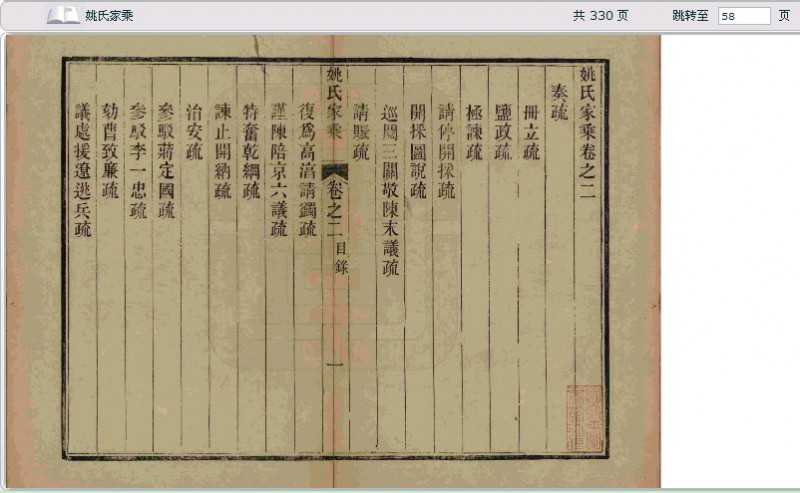 姚氏家乘
共 330 页
跳转至 58 页
姚氏家乘卷之二
奏疏
冊立疏
鹽政疏
極諫疏
請停開採疏
開採圖說疏
巡歷三關敬陳末議疏
請賑疏
姚氏家乘 卷之二 目錄 一
復爲高淯請蠲疏
謹陳陪京六議疏
特奮乾綱疏
諫止開納疏
治安疏
參駁蔣定國疏
參駁李一忠疏
劾曹致廉疏
議處援遼逃兵疏